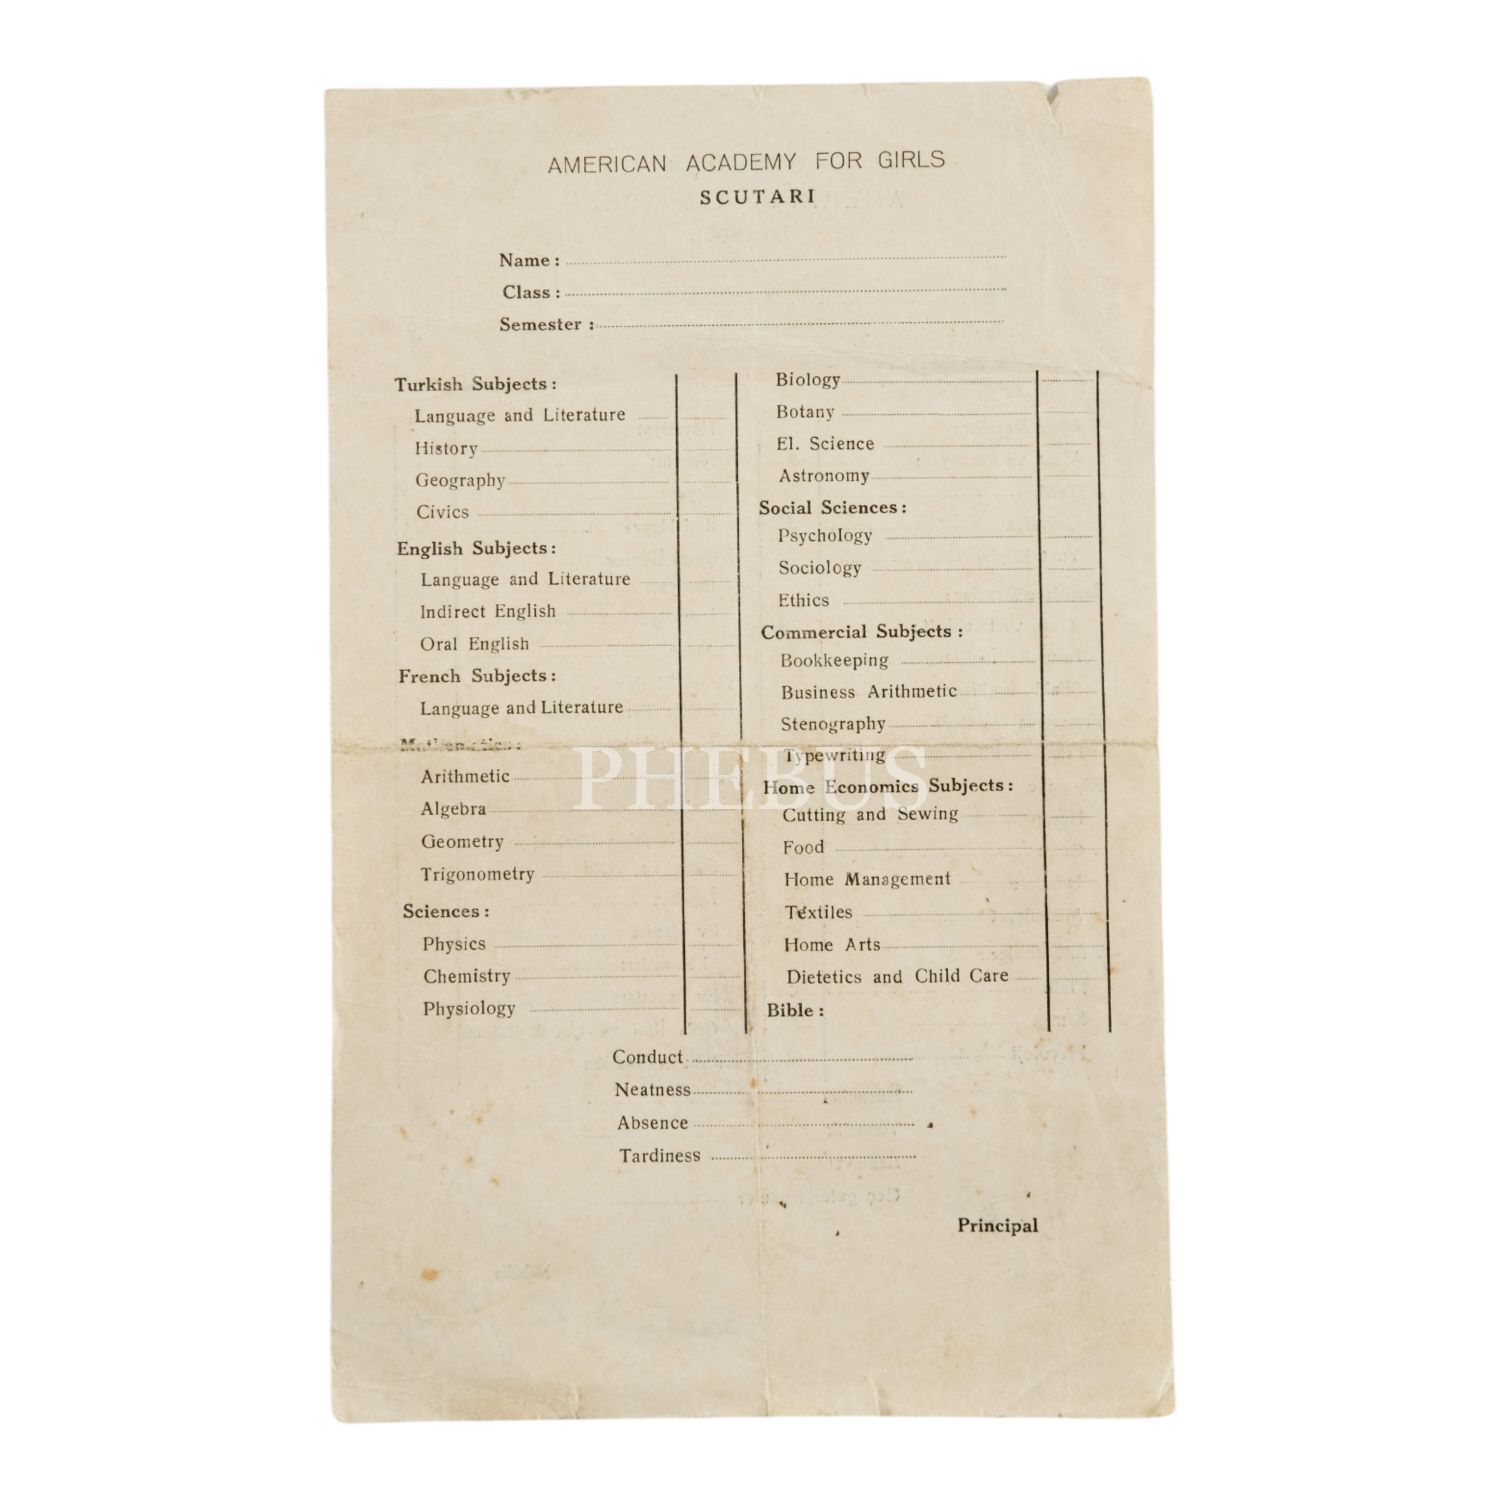 AMERICAN ACADEMY FOR GIRLS
SCUTARI
Name :
Class :
Semester :
Turkish Subjects :
Language and Literature
History
Geography
Civics
English Subjects :
Language and Literature
Indirect English
Oral English
French Subjects :
Language and Literature
Mathematics :
Arithmetic
Algebra
Geometry
Trigonometry
Sciences :
Physics
Chemistry
Physiology
Biology
Botany
El. Science
Astronomy
Social Sciences :
Psychology
Sociology
Ethics
Commercial Subjects :
Bookkeeping
Business Arithmetic
Stenography
Typewriting
Home Economics Subjects :
Cutting and Sewing
Food
Home Management
Textiles
Home Arts
Dietetics and Child Care
Bible :
Conduct
Neatness
Absence
Tardiness
Principal
PHEBUS